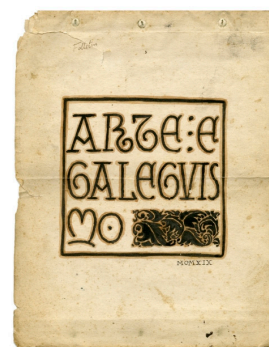 ARTE:E
GALEGUIS
MO
MCMXIX